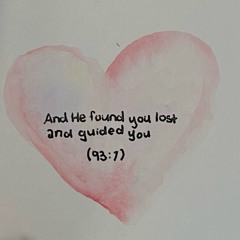 And He found you lost
and guided you
(93:7)